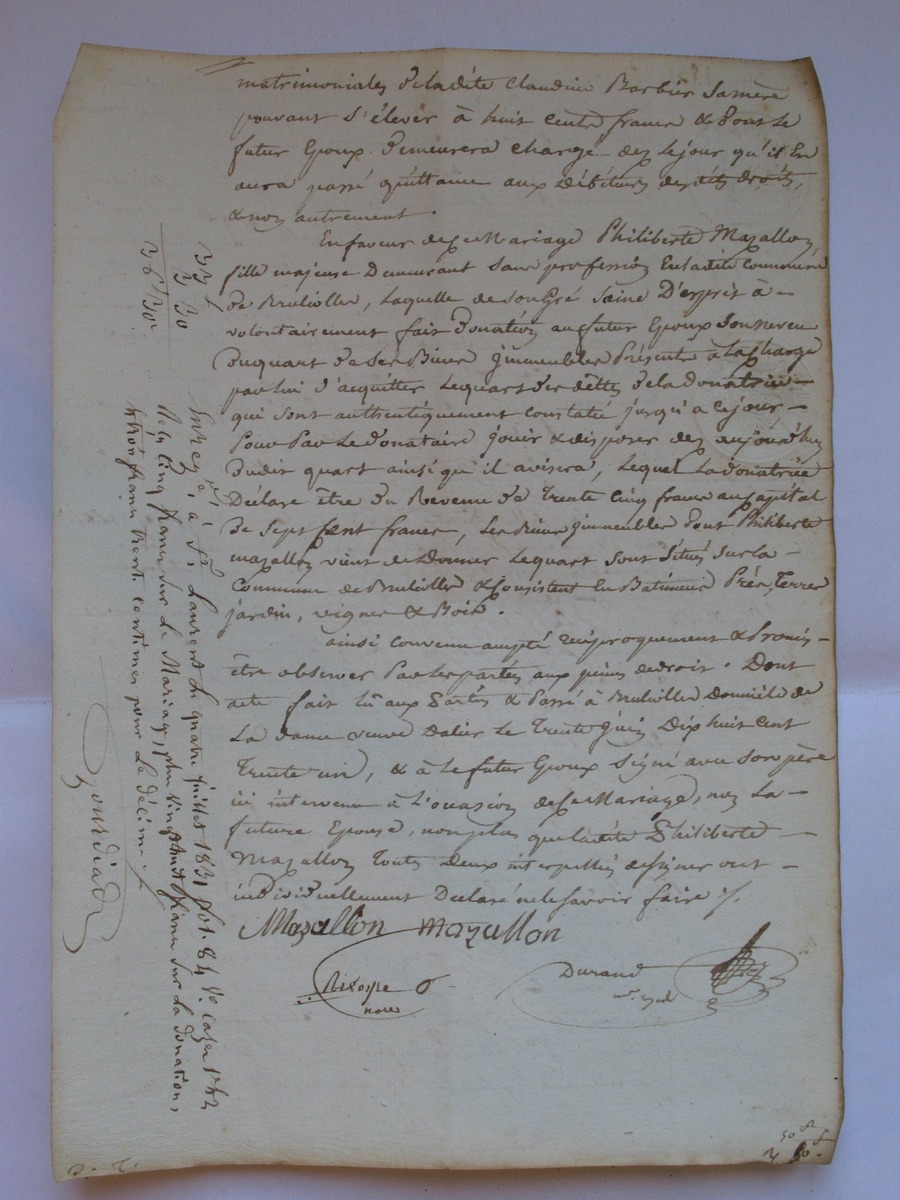 matrimoniales de ladite Claudine Barbier sa mère
pouvant s'élever à huit cents francs & dont le
futur Epoux demeurera chargé dez le jour qu'il En
aura passé quittance aux débiteurs desdits droits,
& non autrement.
En faveur de ce Mariage Philiberte Mazallon,
fille majeure Demeurant sans profession En ladite Commune
de , laquelle de son Gré Saine D'esprit à
volontairement fait Donation au futur Epoux Son neveu
Du quart de ses Biens immeubles Présents à la charge
par lui d'acquitter le quart des dettes de la donatrice
qui sont authentiquement constatée jusqu'a ce jour
Pour Par le Donataire jouir & disposer dez aujourd'huy
Dudit quart ainsi qu'il avisera, Lequel La donatrice
Déclare être du Revenu de Trente Cinq francs au Capital
De Sept Cent francs, Les Biens immeubles dont Philiberte
mazallon vient de donner le quart sont Situés sur la
Commune de & Consistent En Batiments Prés, Terres
jardin, vignes & Bois.
ainsi convenu accepté réciproquement & Promis
être observer Par les parties aux peines de droit. Dont
acte fait lu aux Parties & Passé à domicile de
La dame veuve Dalier Le Trente juin Dix huit cent
Trente un, & à le futur Epoux signé avec son père
ici intervenu à l'occasion de ce Mariage, non La
future Epouse, non plus que ladite Philiberte
Mazallon Toutes Deux interpellées de signer ont
individuellement Declaré ne le savoir faire ./.
Mazallon mazallon
Durand
nore
33 "
3 30
36 30c
Enregé à St Laurent le quatre juillet 1831 fol. 84 Vo cases 1re &2
Reçu cinq francs sur le Mariage, plus vingt huit francs sur la donation,
& trois francs trente centimes pour Le décime ./.
Gourdiat